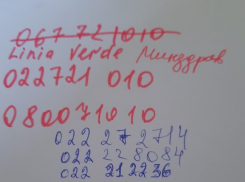 067 721010
Linia verde Минздрав
022721 010
080071010
022 27 2714
022 228084
022 212236